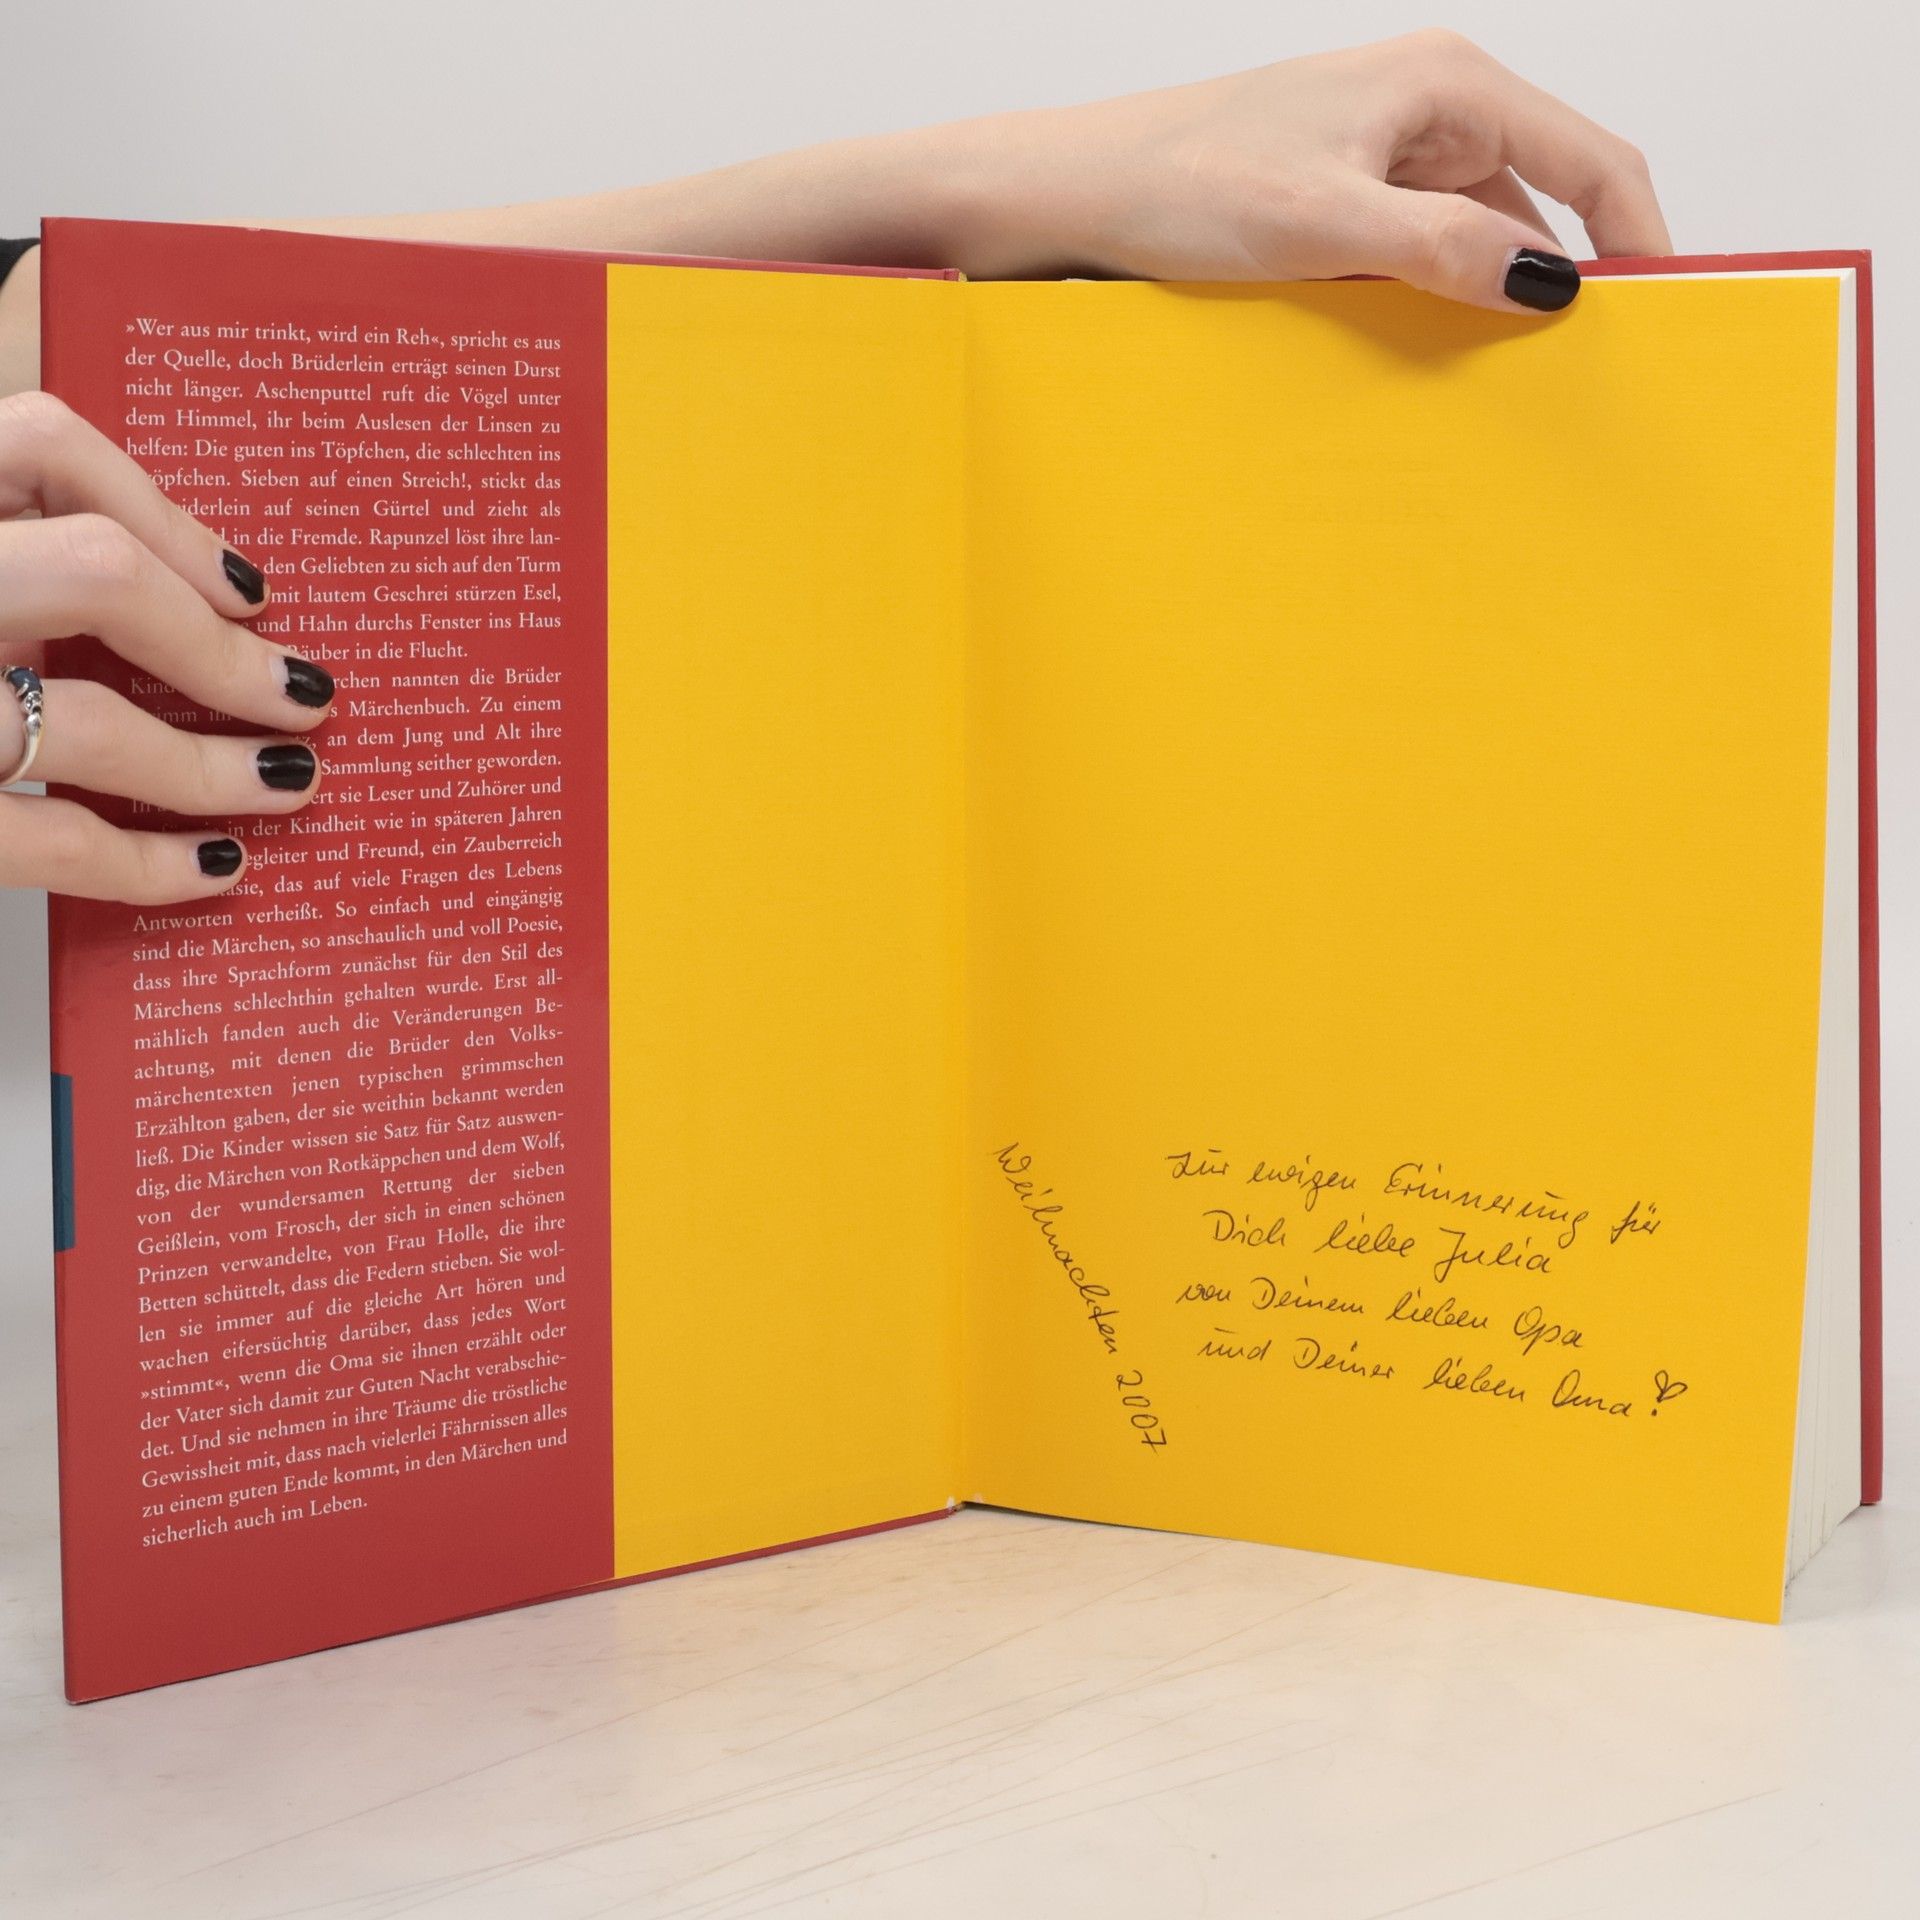 »Wer aus mir trinkt, wird ein Reh«, spricht es aus
der Quelle, doch Brüderlein erträgt seinen Durst
nicht länger. Aschenputtel ruft die Vögel unter
dem Himmel, ihr beim Auslesen der Linsen zu
helfen: Die guten ins Töpfchen, die schlechten ins
öpfchen. Sieben auf einen Streich!, stickt das
iderlein auf seinen Gürtel und zieht als
in die Fremde. Rapunzel löst ihre lan-
den Geliebten zu sich auf den Turm
mit lautem Geschrei stürzen Esel,
und Hahn durchs Fenster ins Haus
Räuber in die Flucht.
Kind rchen nannten die Brüder
imm ih s Märchenbuch. Zu einem
tz, an dem Jung und Alt ihre
Sammlung seither geworden.
In ert sie Leser und Zuhörer und
in der Kindheit wie in späteren Jahren
egleiter und Freund, ein Zauberreich
asie, das auf viele Fragen des Lebens
Antworten verheißt. So einfach und eingängig
sind die Märchen, so anschaulich und voll Poesie,
dass ihre Sprachform zunächst für den Stil des
Märchens schlechthin gehalten wurde. Erst all-
mählich fanden auch die Veränderungen Be-
achtung, mit denen die Brüder den Volks-
märchentexten jenen typischen grimmschen
Erzählton gaben, der sie weithin bekannt werden
ließ. Die Kinder wissen sie Satz für Satz auswen-
dig, die Märchen von Rotkäppchen und dem Wolf,
von der wundersamen Rettung der sieben
Geißlein, vom Frosch, der sich in einen schönen
Prinzen verwandelte, von Frau Holle, die ihre
Betten schüttelt, dass die Federn stieben. Sie wol-
len sie immer auf die gleiche Art hören und
wachen eifersüchtig darüber, dass jedes Wort
»stimmt«, wenn die Oma sie ihnen erzählt oder
der Vater sich damit zur Guten Nacht verabschie-
det. Und sie nehmen in ihre Träume die tröstliche
Gewissheit mit, dass nach vielerlei Fährnissen alles
zu einem guten Ende kommt, in den Märchen und
sicherlich auch im Leben.
Weihnachten 2007
Zur ewigen Erinnerung für
Dich liebe Julia
von Deinem lieben Opa
und Deiner lieben Oma!